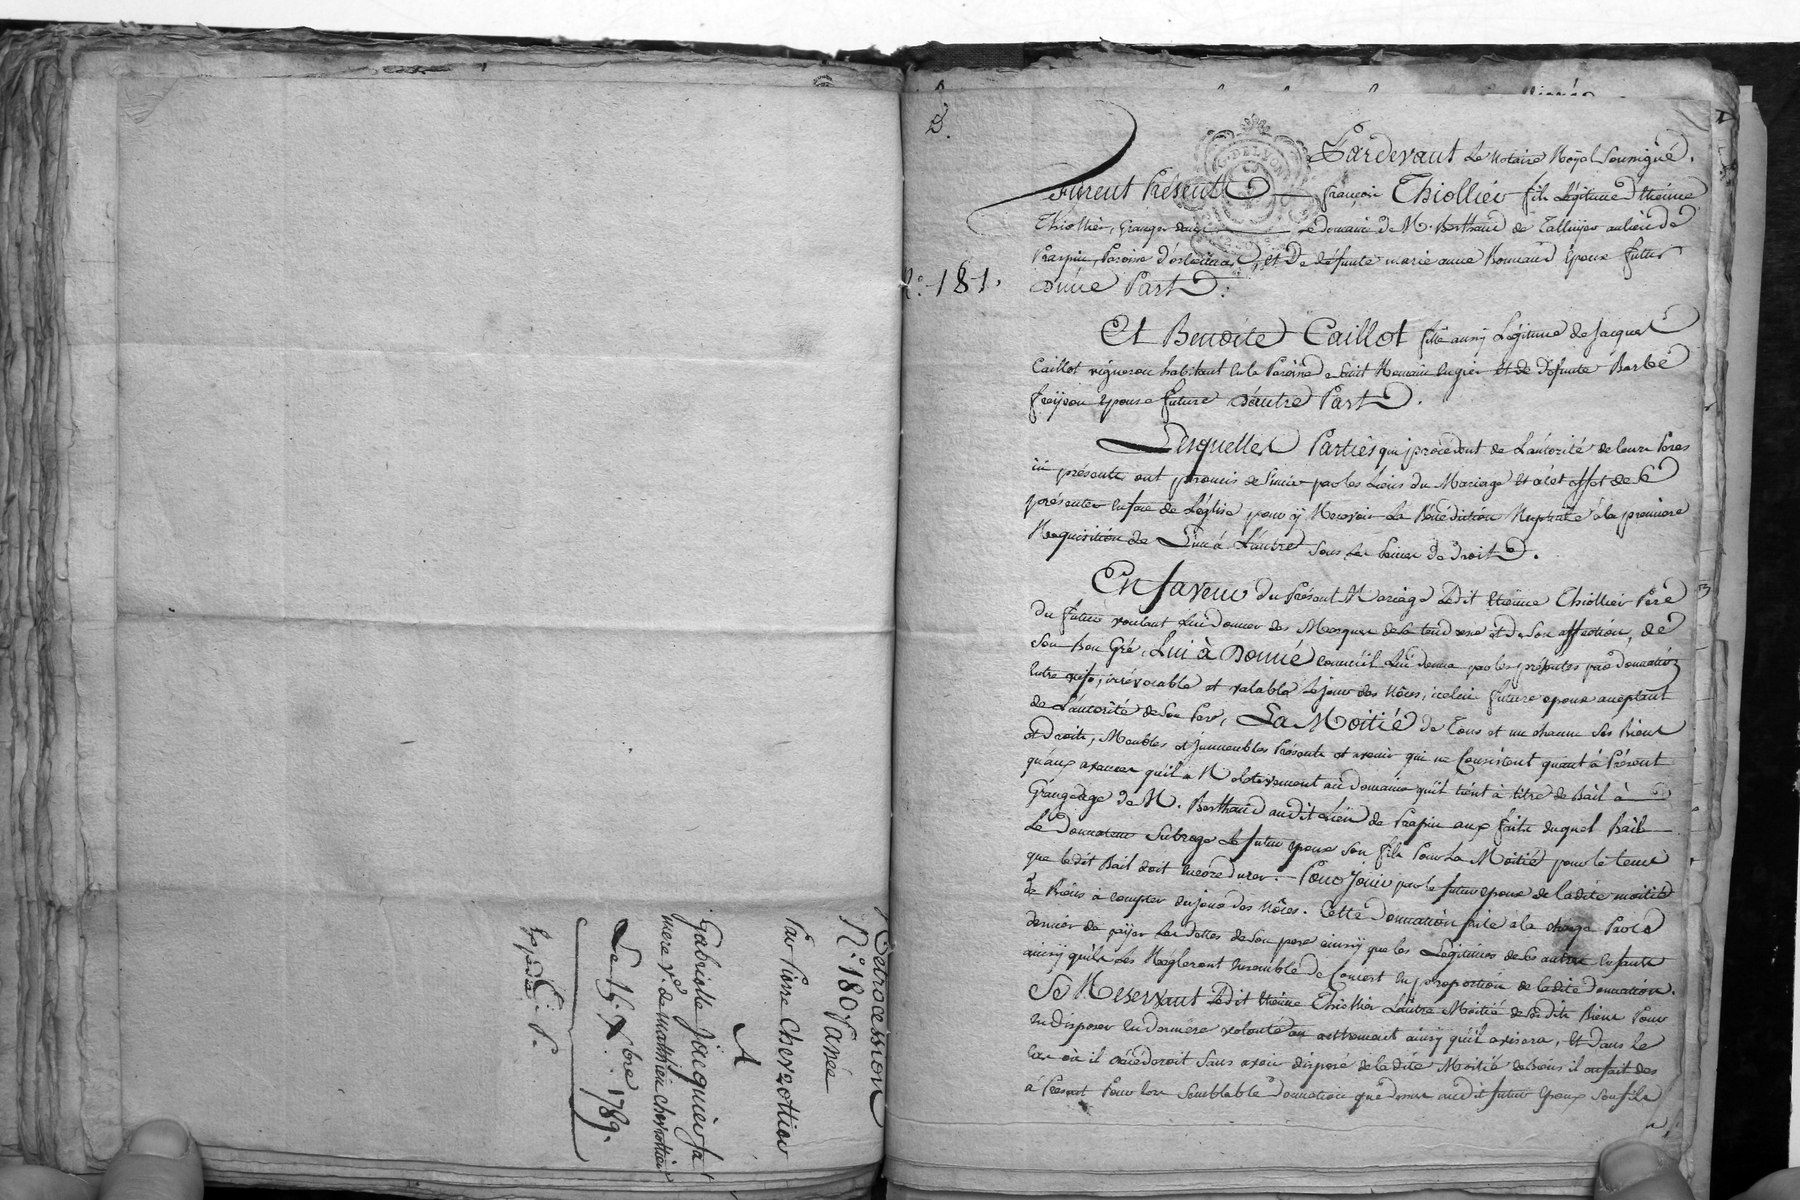 Rétrocession
N.° 180 Passée
Par Pierre Chevrottier
A
Gabrielle Jacquier sa
mere v.e de Matthieu Chevrottier
Le 15 Xbre 1789.
Expédié
G. DE LYON
N.° 181.
Pardevant Le Notaire Royal Soussigné,
Furent Présents françois Thiollier fils Légitime d'Etienne
Thiollier, Granger dans Le domaine de M. Berthaud de Talluyer au lieu de
Prapin, Paroisse d'orliénas, et De défunte marie anne Bonnand Epoux futur
D'une Part.
Et Benoite Caillot fille aussy Légitime de Jacques
Caillot vigneron habitant En la Paroisse de Saint Romain en gier et de défunte Barbe
freyson epouse future D'autre Part.
Lesquelles Parties qui procedent de L'autorité de leurs Peres
ici présents ont promis de S'unir par les Liens du Mariage et à cet effet de se
présenter en face de L'église pour y Recevoir La Bénédiction Nuptiale à la premiere
Requisition de L'un à L'autre Sous Les peines de droit.
En faveur du Présent Mariage Ledit Etienne Thiollier Pere
Du futur voulant Lui donner des Marques de Sa tendresse et de Son affection, de
Son Bon Gré, Lui à Donné comme il Lui donne par les présentes par donnation
Entre vifs, irrévocable et valable le jour des Nôces, icelui futur epoux acceptant
de L'autorité de Son Pere, La Moitié de Tous et un chacun Ses Biens
et Droits, Meubles et Immeubles Présents et avenir qui ne Consistent quant à Présent
qu'aux avances qu'il a Relativement au Domaine qu'il tient à titre de Bail à
Grangeage de M. Berthaud audit Lieu de Prapin aux faits duquel Bail
Le Donnateur Subroge Le futur epoux Son fils Pour La Moitié pour le tems
que ledit Bail doit encore durer. Pour Jouir par le futur epoux de ladite moitié
de Biens à compter du jour des Nôces. Cette Donnation faite à la charge Par Ce
dernier de payer Les dettes de Son pere ainsy que les Légitimes de Ses autres Enfants
ainsy qu'ils Les Regleront Ensemble de Concert En proportion de ladite Donnation.
Se Reservant Ledit Etienne Thiollier L'autre Moitié de Sesdits Biens Pour
En disposer En derniere volonté ou autrement ainsy qu'il avisera, Et dans Le
Cas où il décéderoit Sans avoir disposé de ladite Moitié de Biens il en fait des
à Présent Pour lors Semblable Donnation que dessus audit futur Epoux Son fils